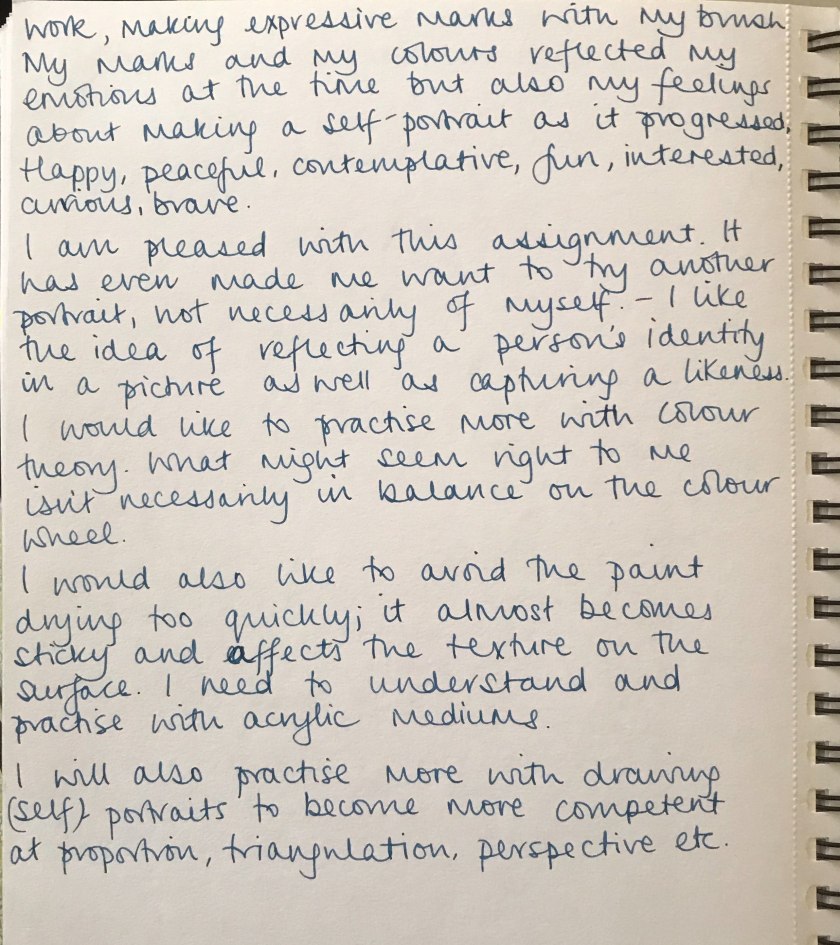 work, making expressive marks with my brush
My marks and my colours reflected my
emotions at the time but also my feelings
about making a self-portrait as it progressed.
Happy, peaceful, contemplative, fun, interested,
curious, brave.
I am pleased with this assignment. It
has even made me want to try another
portrait, not necessarily of myself. - I like
the idea of reflecting a person's identity
in a picture as well as capturing a likeness.
I would like to practise more with colour
theory. What might seem right to me
isn't necessarily in balance on the colour
wheel.
I would also like to avoid the paint
drying too quickly; it almost becomes
sticky and affects the texture on the
surface. I need to understand and
practise with acrylic mediums.
I will also practise more with drawing
(self) portraits to become more competent
at proportion, triangulation, perspective etc.